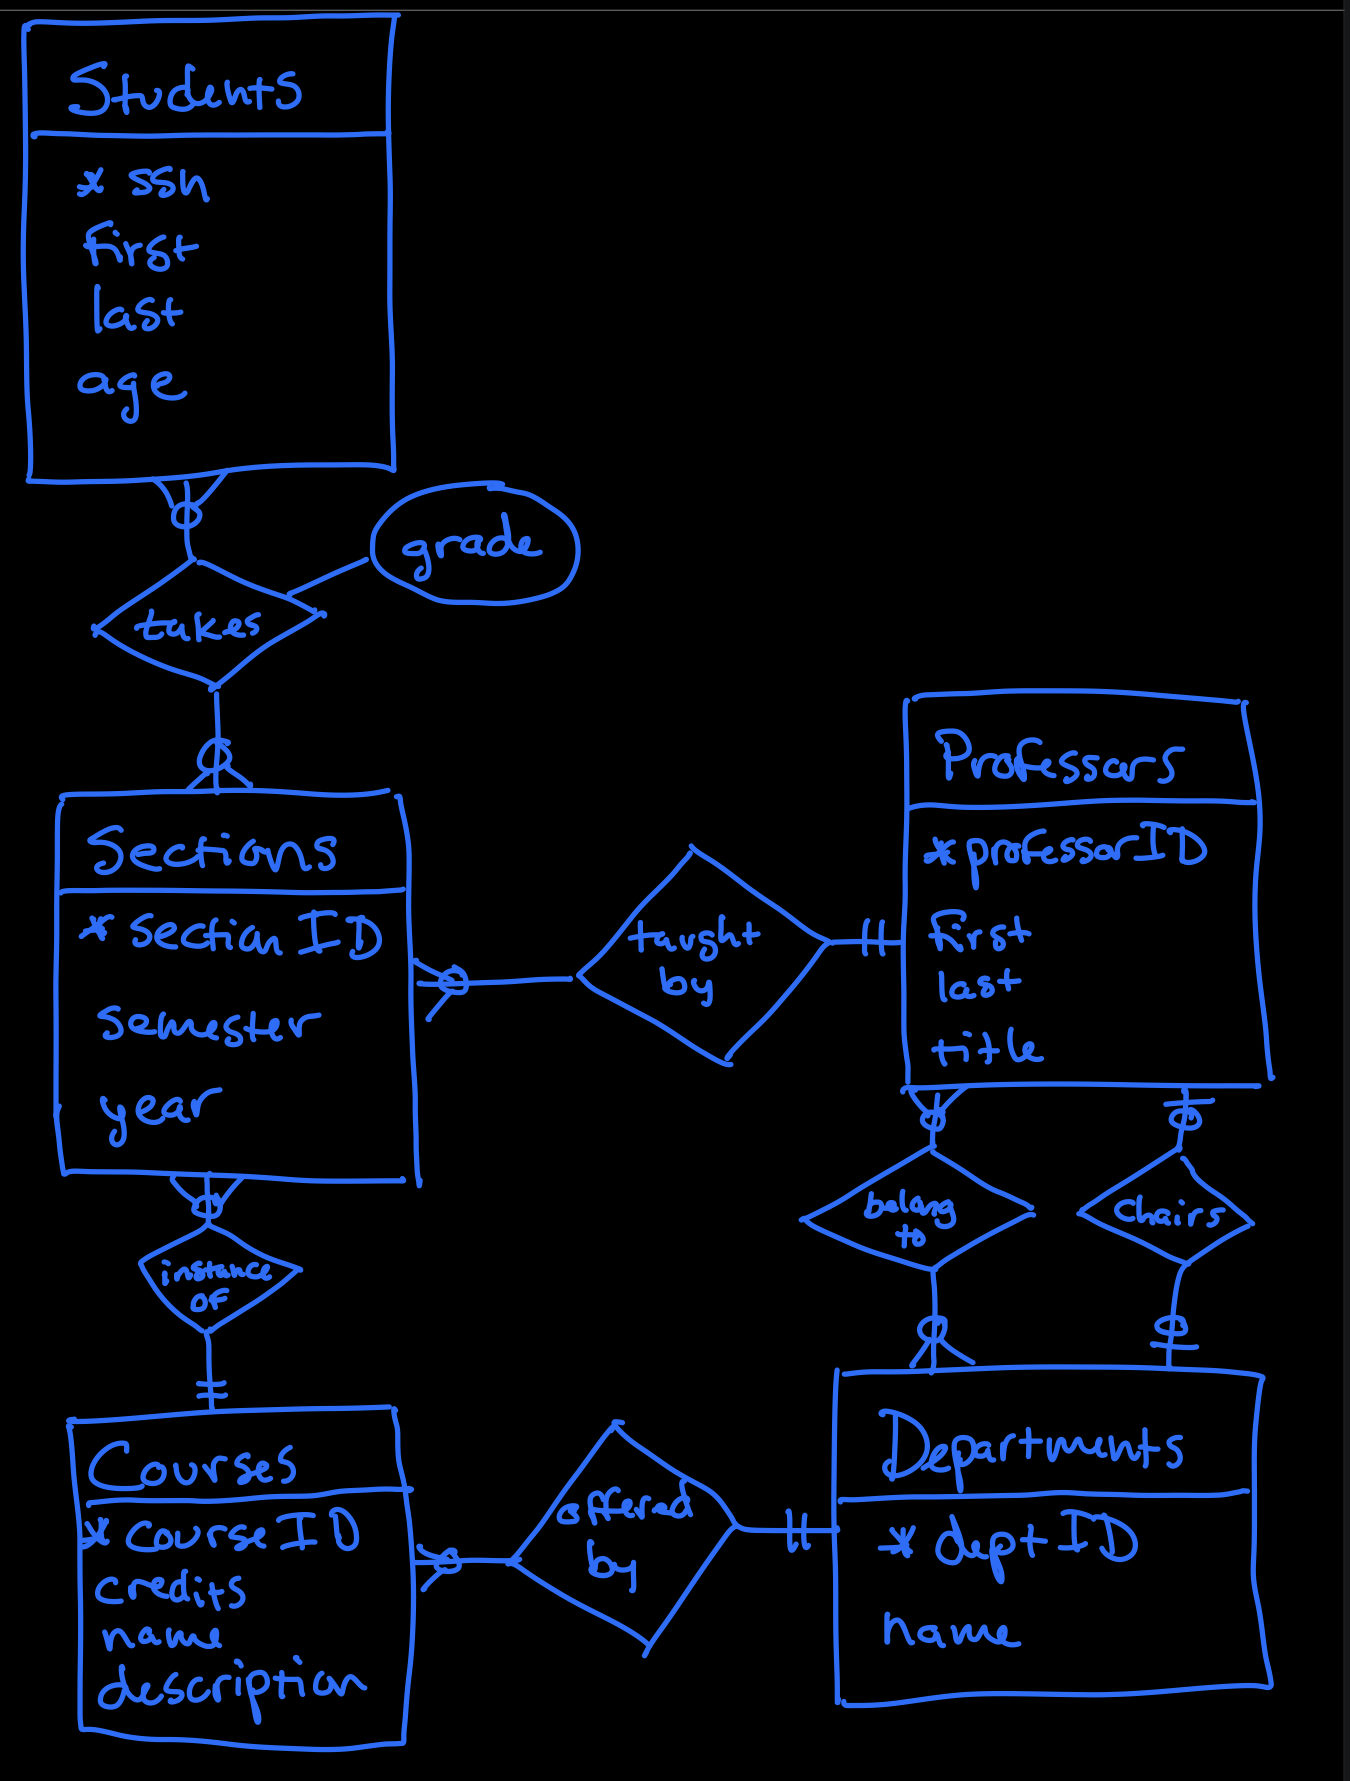 Students
* ssn
first
last
age
grade
takes
Sections
* section ID
semester
year
taught
by
Professors
* professorID
first
last
title
belong
to
chairs
instance
of
Courses
* courseID
credits
name
description
offered
by
Departments
* deptID
name